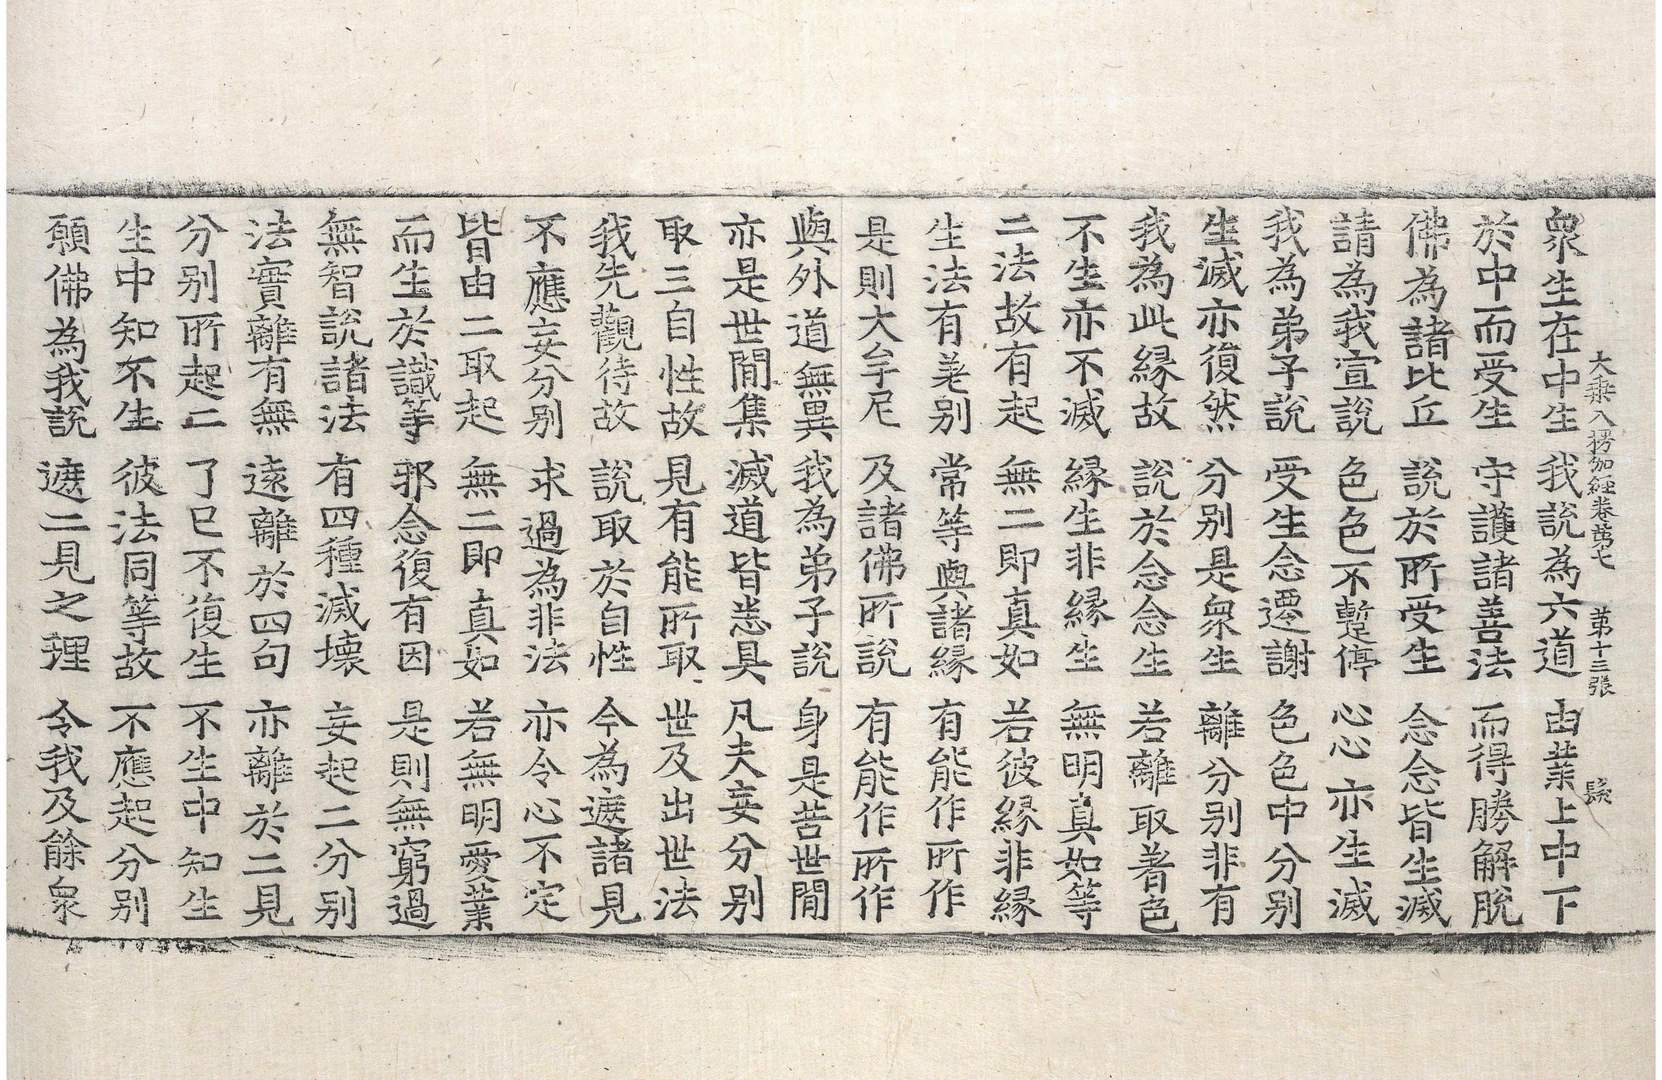 大乘入楞伽經卷第七 第十三張 髮
衆生在中生 我說為六道 由業上中下
於中而受生 守護諸善法 而得勝解脫
佛為諸比丘 說於所受生 念念皆生滅
請為我宣說 色色不暫停 心心亦生滅
我為弟子說 受生念遷謝 色色中分別
生滅亦復然 分別是衆生 離分別非有
我為此緣故 說於念念生 若離取著色
不生亦不滅 緣生非緣生 無明真如等
二法故有起 無二即真如 若彼緣非緣
生法有差別 常等與諸緣 有能作所作
是則大牟尼 及諸佛所說 有能作所作
與外道無異 我為弟子說 身是苦世間
亦是世間集 滅道皆悉具 凡夫妄分別
取三自性故 見有能所取 世及出世法
我先觀待故 說取於自性 今為遮諸見
不應妄分別 求過為非法 亦令心不定
皆由二取起 無二即真如 若無明愛業
而生於識等 邪念復有因 是則無窮過
無智說諸法 有四種滅壞 妄起二分別
法實離有無 遠離於四句 亦離於二見
分別所起二 了已不復生 不生中知生
生中知不生 彼法同等故 不應起分別
願佛為我說 遮二見之理 令我及餘衆